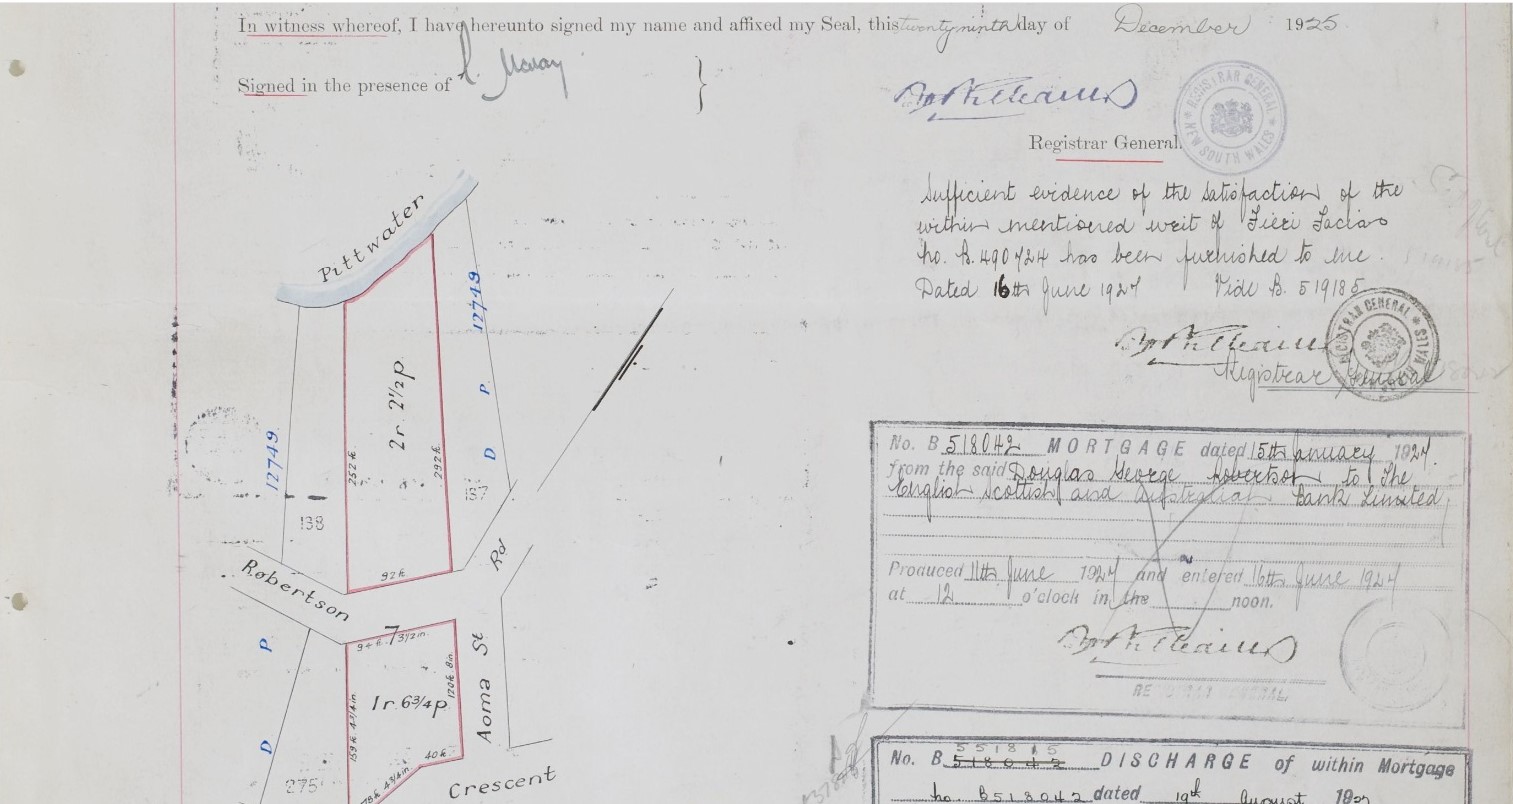 In witness whereof, I have hereunto signed my name and affixed my Seal, this twenty ninth day of December 1925
Signed in the presence of
}
Registrar General.
REGISTRAR GENERAL
NEW SOUTH WALES
Sufficient evidence of the satisfaction of the
within mentioned writ of Fieri Facias
No. B.490724 has been furnished to me.
Dated 16th June 1927 Vide B. 519185
Registrar General
REGISTRAR GENERAL
Pittwater
12749
12749
2r. 2½p
252 ft
292 ft
92 ft
D P
157
138
Robertson Rd
7
94 ft 3½in.
120 ft 8in.
1r. 6¾p
159 ft 4¾in
40 ft
4¾in.
D P
275
Aoma St
Crescent
No. B 518042 MORTGAGE dated 15th January 1927.
from the said Douglas George Robertson to The
English Scottish and Australian Bank Limited
Produced 11th June 1927 and entered 16th June 1927
at 12 o'clock in the noon.
REGISTRAR GENERAL.
No. B 551815 518042 DISCHARGE of within Mortgage
No. B518042 dated 19th August 1927